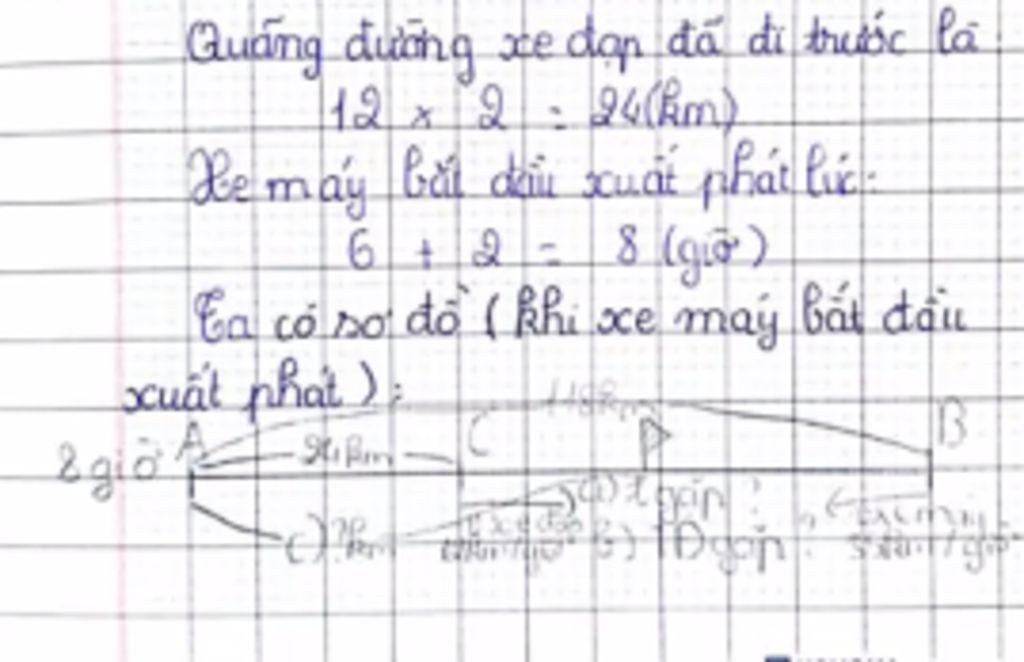 Quãng đường xe đạp đã đi trước là
12 x 2 = 24(km)
Xe máy bắt đầu xuất phát lúc:
6 + 2 = 8 (giờ)
Ta có sơ đồ (khi xe máy bắt đầu
xuất phát):
118km
8 giờ A 24km C B
a) gặp ?
c) ?km b) Đ gặp